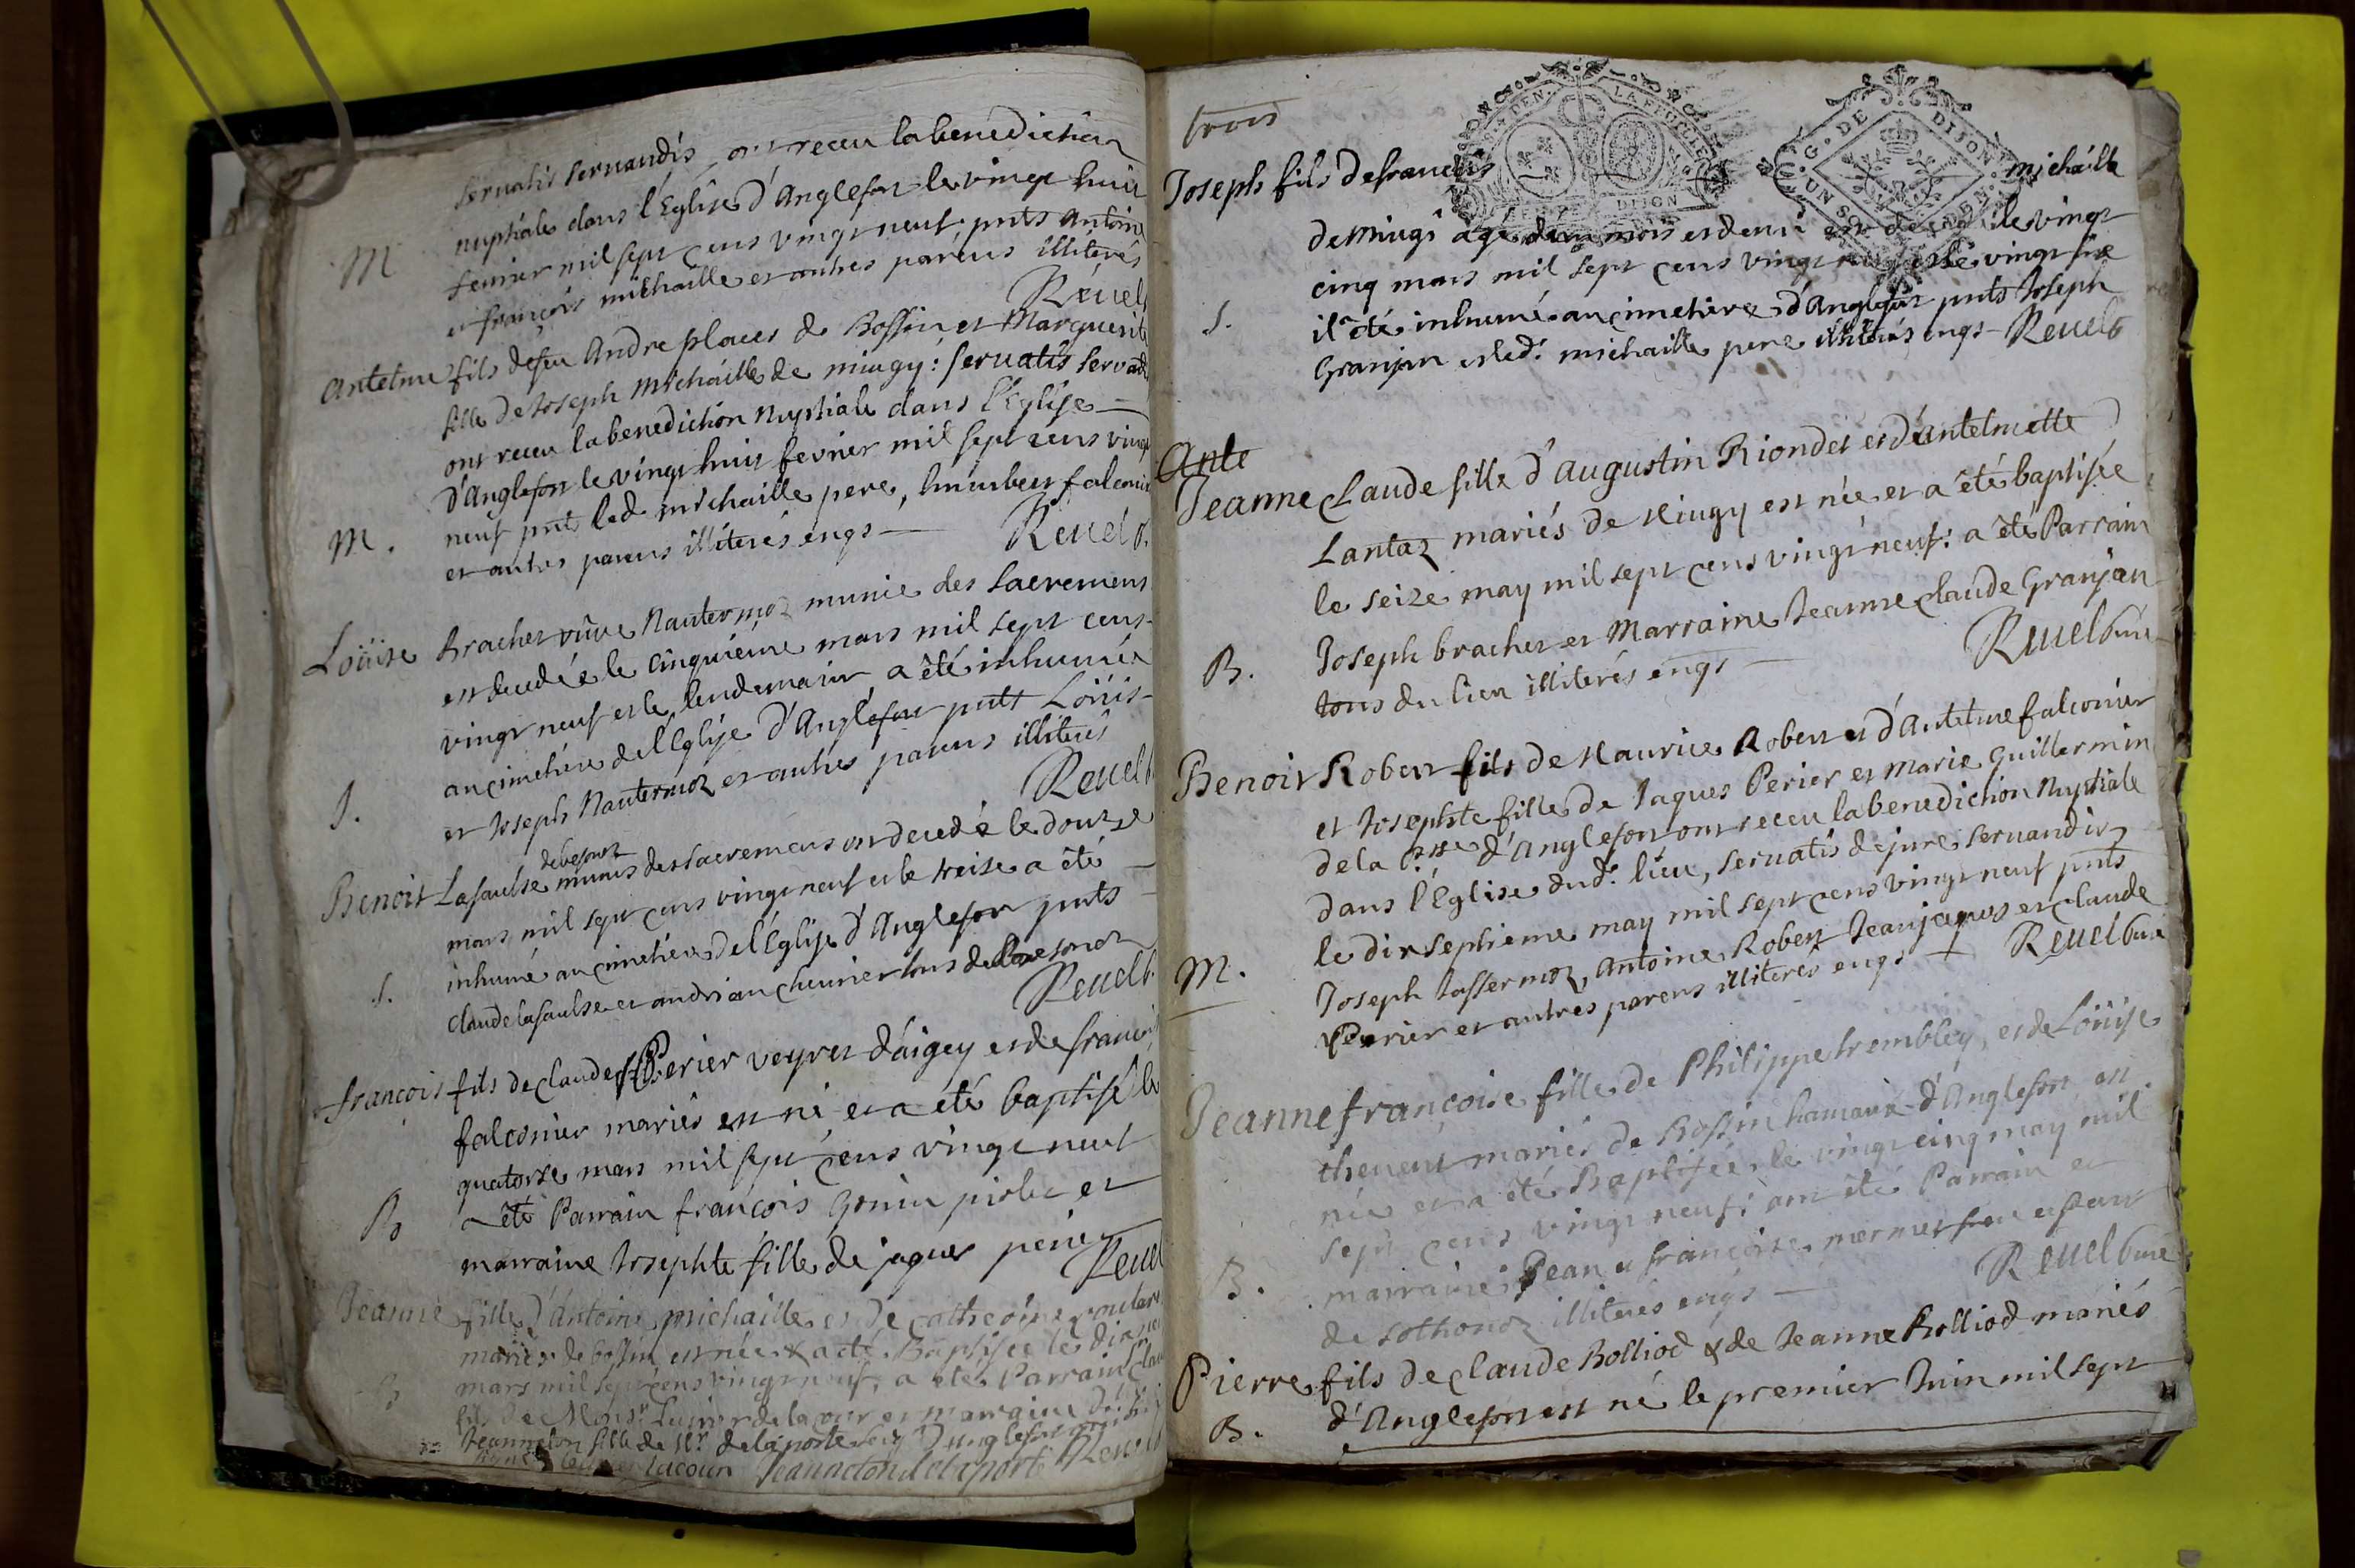 servatis servandis, ont receu la benediction
nuptiale dans l'Eglise d'Anglefort le vingt huit
M
fevrier mil sept cens vingt neuf, pnts Antoine
et françois michaille et autres parens illiterés
Revel
Antelme fils defeu Andre places de Bossin et Marguerite
fille de Joseph Michaille de miugy: servatis servandis
ont receu la benediction Nuptiale dans l'Eglise
d'Anglefort le vingt huit fevrier mil sept cens vingt
M.
neuf pnt led. michaille pere, humbert falconier
et autres parens illiterés enqs
Revel
Loüise Brachet Nantermoz munie des sacremens
est decedée le cinquiéme mars mil sept cens
vingt neuf et le lendemain a été inhumée
au cimetiere de l'Eglise d'Anglefort pnts Loüis
S.
et Joseph Nantermoz et autres parens illiterés
Revel
Benoit Lasaulse munis des sacremens est decedé le douze
mars mil sept cens vingt neuf et le treize a été
inhumé au cimetiere de l'Eglise d'Anglefort pnts
S.
Claude lasaulse et andrian chevrier tous de
Revel
françois fils de claude Perier veyret d'aigey et de
falconier mariés est né et a été baptisé le
quatorze mars mil sept cens vingt neuf
B
a été Parrain françois et
marraine Josephte fille de jaques perier
Revel
Jeanne fille d'Antoine michaille et de catherine
mariés de bossin est née & a été Baptisée le
B
mars mil sept cens vingt neuf, a été Parrain
fils de Monsr. de la cour et marraine
Jeanneton fille de Sr. delaporte d'Anglefort
lacour Jeanneton delaporte Revel
trois
G. DE DIJON
UN SOL
Joseph fils de francois michaille
de miugi agé dun mois et demi est decedé le vingt
cinq mars mil sept cens vingt neuf et le vingt six
S.
il a été inhumé au cimetiere d'Anglefort pnts Joseph
Granjan et led. michaille pere illiterés enqs Revel
Ante
Jeanne Claude fille d'augustin Riondet et d'antelmette
Lantaz mariés de Miugy est née et a été baptisée
le seize may mil sept cens vingt neuf: a été Parrain
B.
Joseph brachet et Marraine Jeanne claude Granjan
tous du lieu illiterés enqs
Revel curé
Benoit Robert fils de Maurice Robert et d'Antelme falconier
et Josephte fille de Jaques Perier et Marie Guillermin
de la psse d'Anglefort ont receu la benediction Nuptiale
dans l'Eglise dud. lieu, servatis de jure servandis
le dix septieme may mil sept cens vingt neuf pnts
M.
Joseph Jassermoz, Antoine Robert Jean jaques et claude
Perier et autres parens illiterés enqs Revel curé
Jeanne françoise fille de Philippe trembley, et de Loüise
thevent mariés de Bossin hamaux d'Anglefort est
née et a été Baptisée le vingt cinq may mil
sept cens vingt neuf: ont été Parrain et
B.
marraine Jean et françoise mermet frere et soeur
de sothonoz illiterés enqs
Revel curé
Pierre fils de claude Bolliod & de Jeanne Bolliod mariés
B.
d'Anglefort est né le premier Juin mil sept